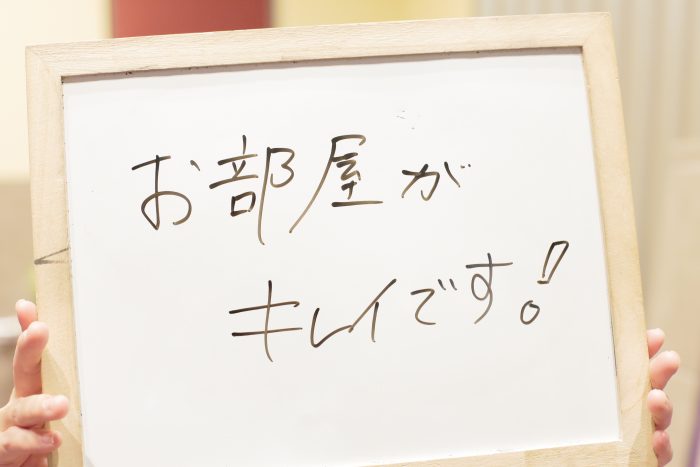 お部屋が
キレイです!